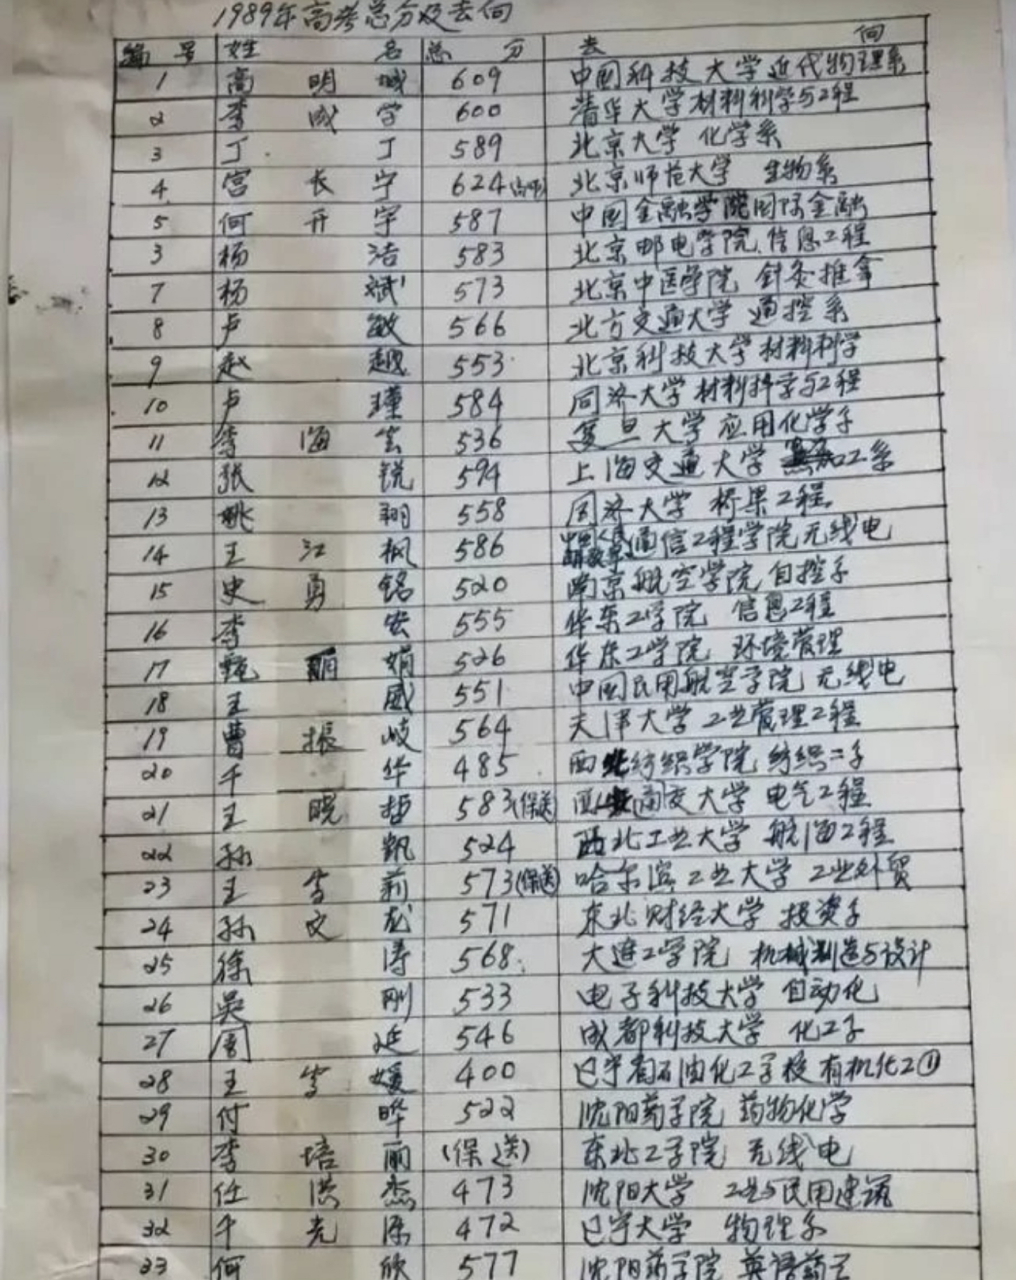 1989年高考总分及去向
编号 姓名 总分 去向
1 高明城 609 中国科技大学近代物理系
2 李成学 600 清华大学材料科学与工程
3 丁丁 589 北京大学 化学系
4 宫长宁 624 北京师范大学 生物系
5 何开宇 587 中国金融学院国际金融
3 杨浩 583 北京邮电学院 信息工程
7 杨斌 573 北京中医学院 针灸推拿
8 卢敏 566 北方交通大学 通控系
9 赵越 553 北京科技大学材料科学
10 卢瑾 584 同济大学材料科学与工程
11 李海芸 536 复旦大学 应用化学系
12 张锐 594 上海交通大学 加工系
13 姚翔 558 同济大学 桥梁工程
14 王江枫 586 通信工程学院无线电
15 史勇铭 520 南京航空学院 自控系
16 李宏 555 华东工学院 信息工程
17 甄娟 526 华东工学院 环境管理
18 王威 551 中国民用航空学院 无线电
19 曹振岐 564 天津大学 工业管理工程
20 于华 485 西北纺织学院 纺织二系
21 王晓哲 583(保送) 西安交大学 电气工程
22 孙凯 524 西北工业大学 航海工程
23 王雪莉 573(保送) 哈尔滨工业大学 工业外贸
24 孙文龙 571 东北财经大学 投资系
25 徐涛 568 大连工学院 机械制造与设计
26 吴刚 533 电子科技大学 自动化
27 周延 546 成都科技大学 化工系
28 王雪媛 400 辽宁省石油化工学校 有机化工①
29 付晔 522 沈阳药学院 药物化学
30 李培丽 (保送) 东北工学院 无线电
31 任洪杰 473 沈阳大学 工业与民用建筑
32 于光 472 辽宁大学 物理系
33 何欣 577 沈阳药学院 英语药学